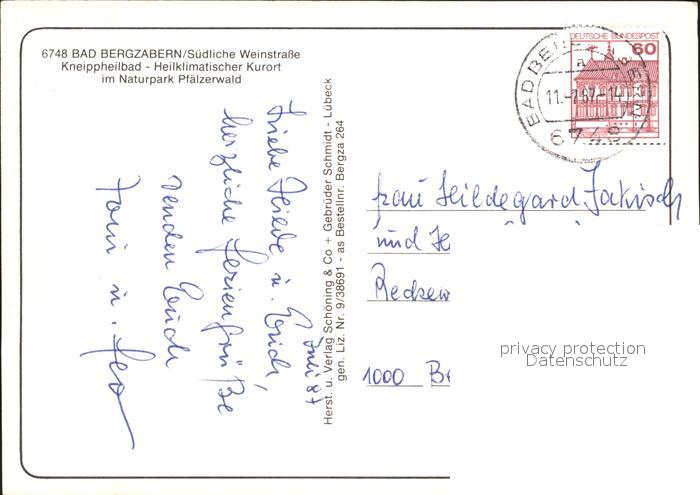 6748 BAD BERGZABERN/Südliche Weinstraße
Kneippheilbad - Heilklimatischer Kurort
im Naturpark Pfälzerwald
Juli 87
Liebe Friede u. Erich,
herzliche Feriengrüße
senden Euch
Toni u. Leo
Herst. u. Verlag Schöning & Co + Gebrüder Schmidt - Lübeck
gen. Liz. Nr. 9/38691 - as Bestellnr. Bergza 264
DEUTSCHE BUNDESPOST
60
BAD BERGZABERN
a
11.-7.87-14
6748
Frau Hildegard Jakisch
und
1000 Be
privacy protection
Datenschutz